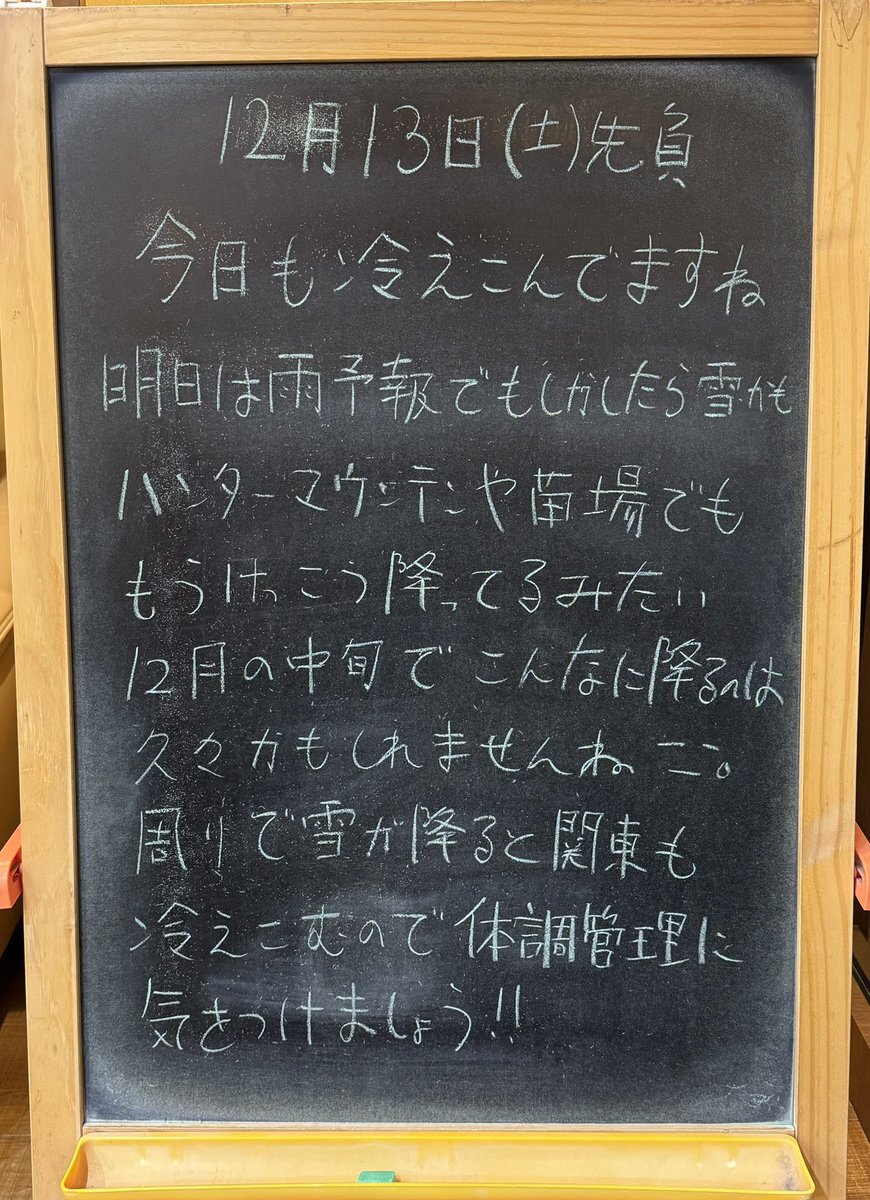 12月13日(土)先負
今日も冷えこんでますね
明日は雨予報でもしかしたら雪かも
ハンターマウンテンや苗場でも
もうけっこう降ってるみたい
12月の中旬でこんなに降るのは
久々かもしれませんね ここ。
周りで雪が降ると関東も
冷えこむので体調管理に
気をつけましょう!!